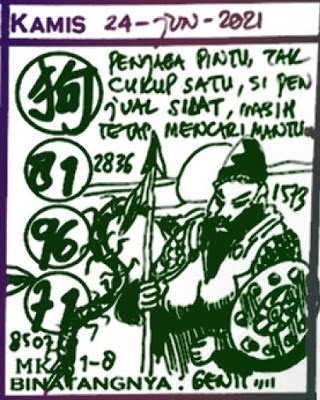 KAMIS 24-JUN-2021
PENJAGA PINTU, TAK
CUKUP SATU, SI PEN
JUAL SILAT, MASIH
TETAP MENCARI MANTU
狗
81
2836
1513
96
71
8507
MK 1-8
BINATANGNYA : GENIT ,,,,